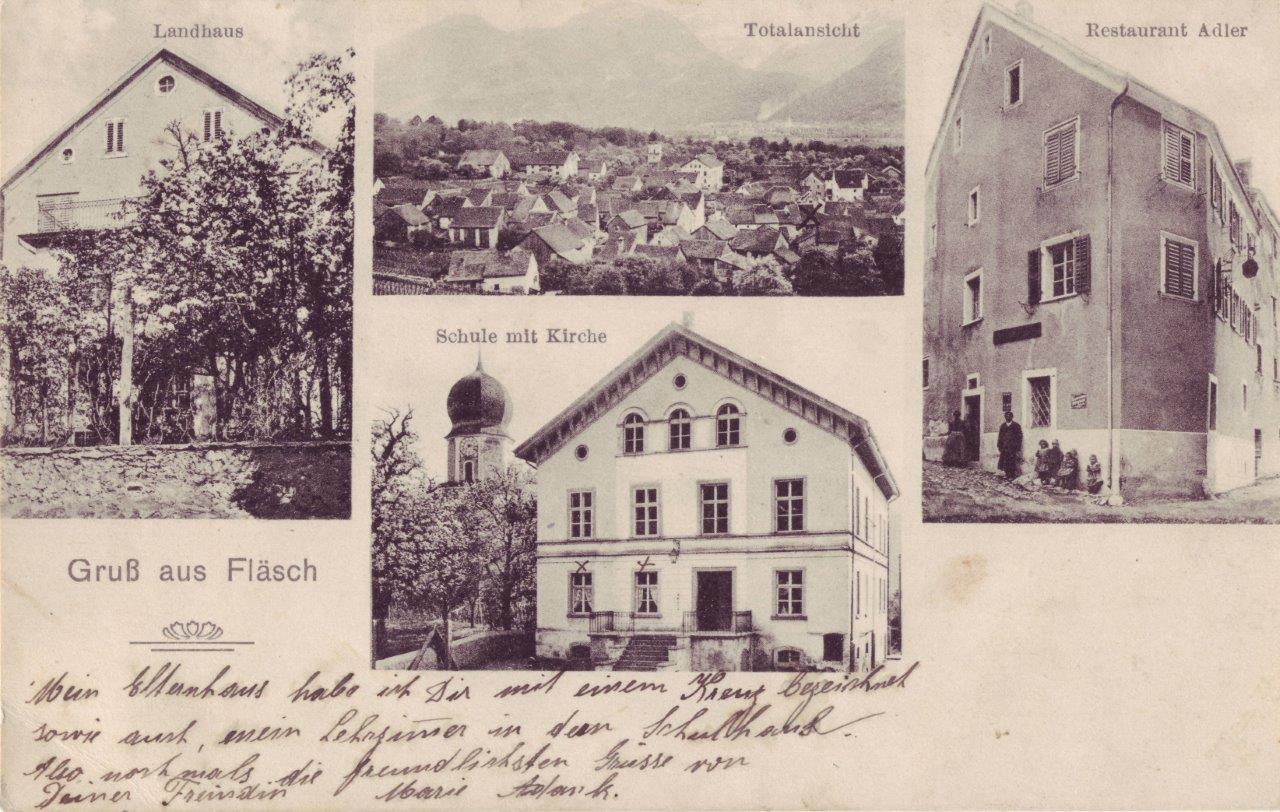 Landhaus
Totalansicht
Restaurant Adler
Schule mit Kirche
Gruß aus Fläsch
Mein Elternhaus habe ich Dir mit einem Kreuz bezeichnet
sowie auch, mein Lehrzim̅er in dem Schulhaus.
Also nochmals die freundlichsten Grüsse von
Deiner Freundin Marie Adank.